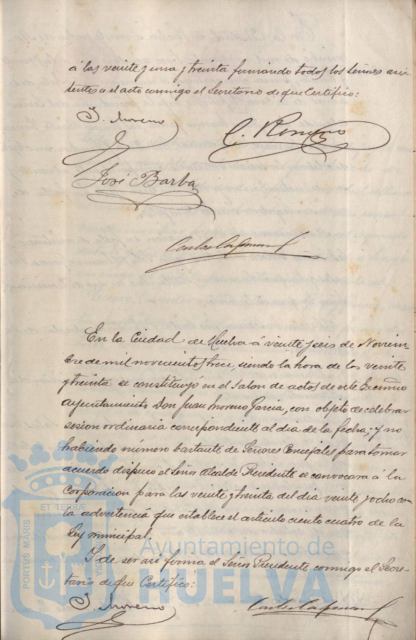 á las veinte y una y treinta firmando todos los Señores asis
tentes a el acto conmigo el Secretario de que Certifico:
J. Moreno
José Barba
En la Ciudad de Huelva á veinte y seis de Noviem
bre de mil novecientos trece, siendo la hora de las veinte
y treinta se constituyó en el Salon de actos de este Excmo
Ayuntamiento Don Juan Moreno Garcia, con objeto de celebrar
sesion ordinaria correspondiente al dia de la fecha; y no
habiendo número bastante de Señores Concejales para tomar
acuerdo dispuso el Señor Alcalde Presidente se convocara á la
Corporacion para las veinte y treinta del dia veinte y ocho con
la advertencia que establece el articulo ciento cuatro de la
Ley municipal.
Y de ser asi forma el Señor Presidente conmigo el Secre-
tario de que Certifico:
J. Moreno
PORTUS MARIS
ET TERRAE
Ayuntamiento de
HUELVA